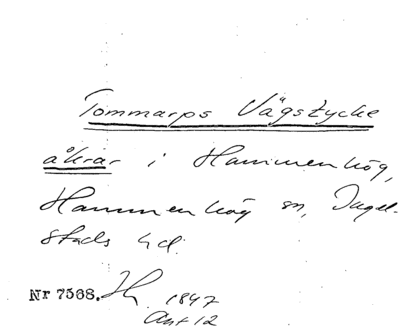 Tommarps Vägstycke
åkrar i Hammenhög,
Hammenhög sn, Ingel-
stads hd.
Nr 7568. H 1847
Akt 12